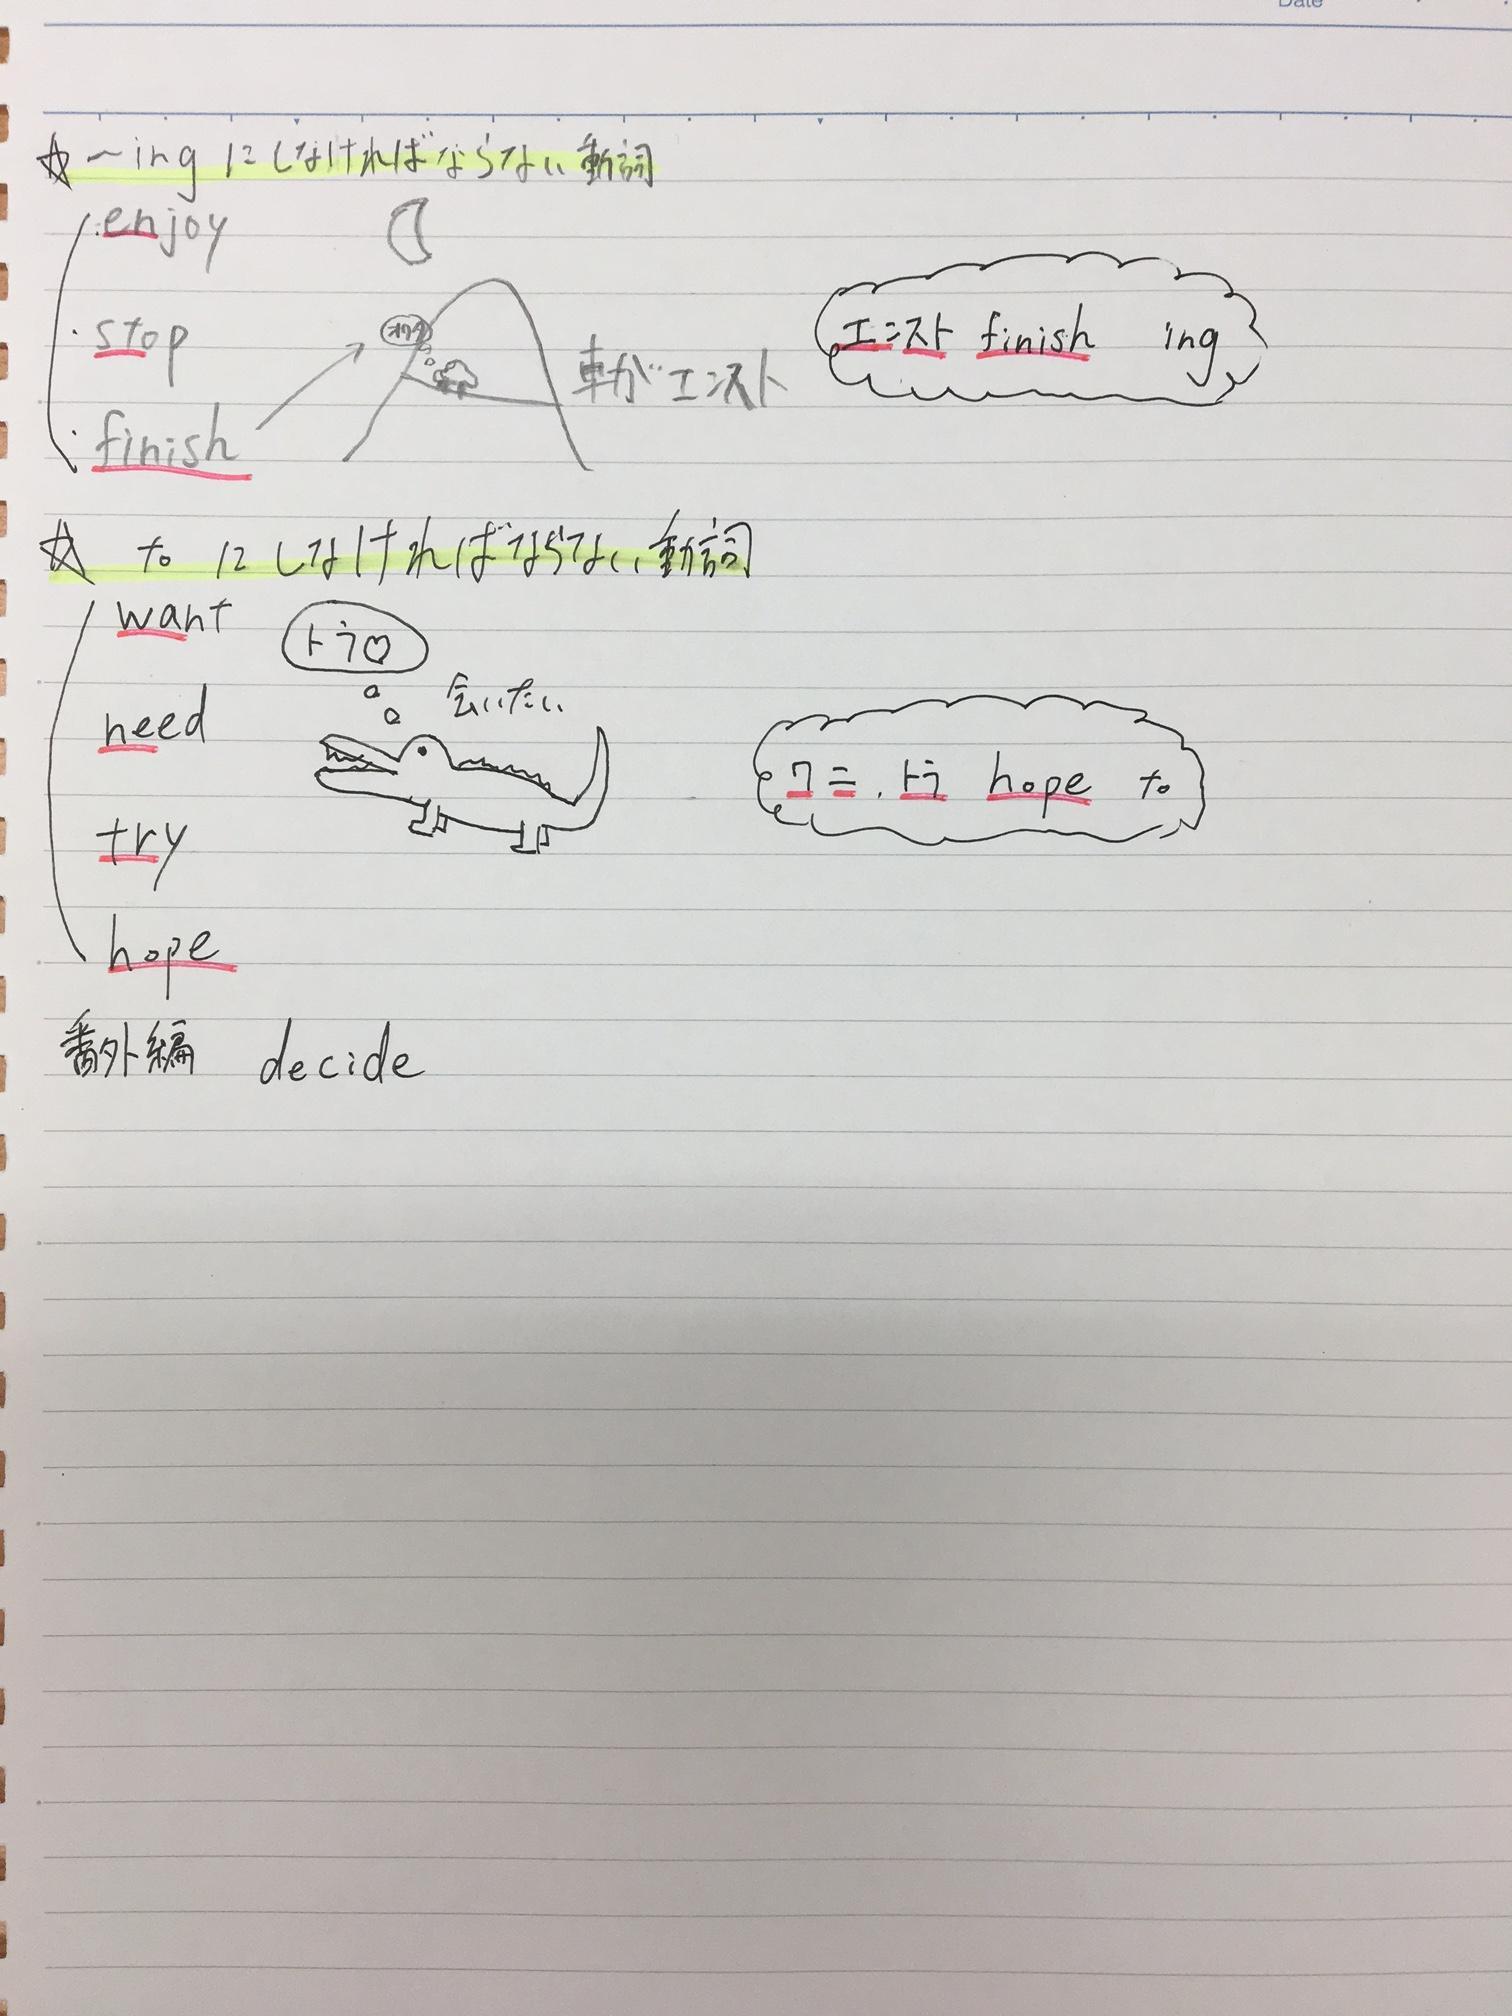 Date
☆ ～ing にしなければならない動詞
・enjoy
・stop
オワタ
車がエンスト
エンスト finish ing
・finish
☆ to にしなければならない動詞
want
トラ♡
need
会いたい
ワニ、トラ hope to
try
hope
番外編 decide